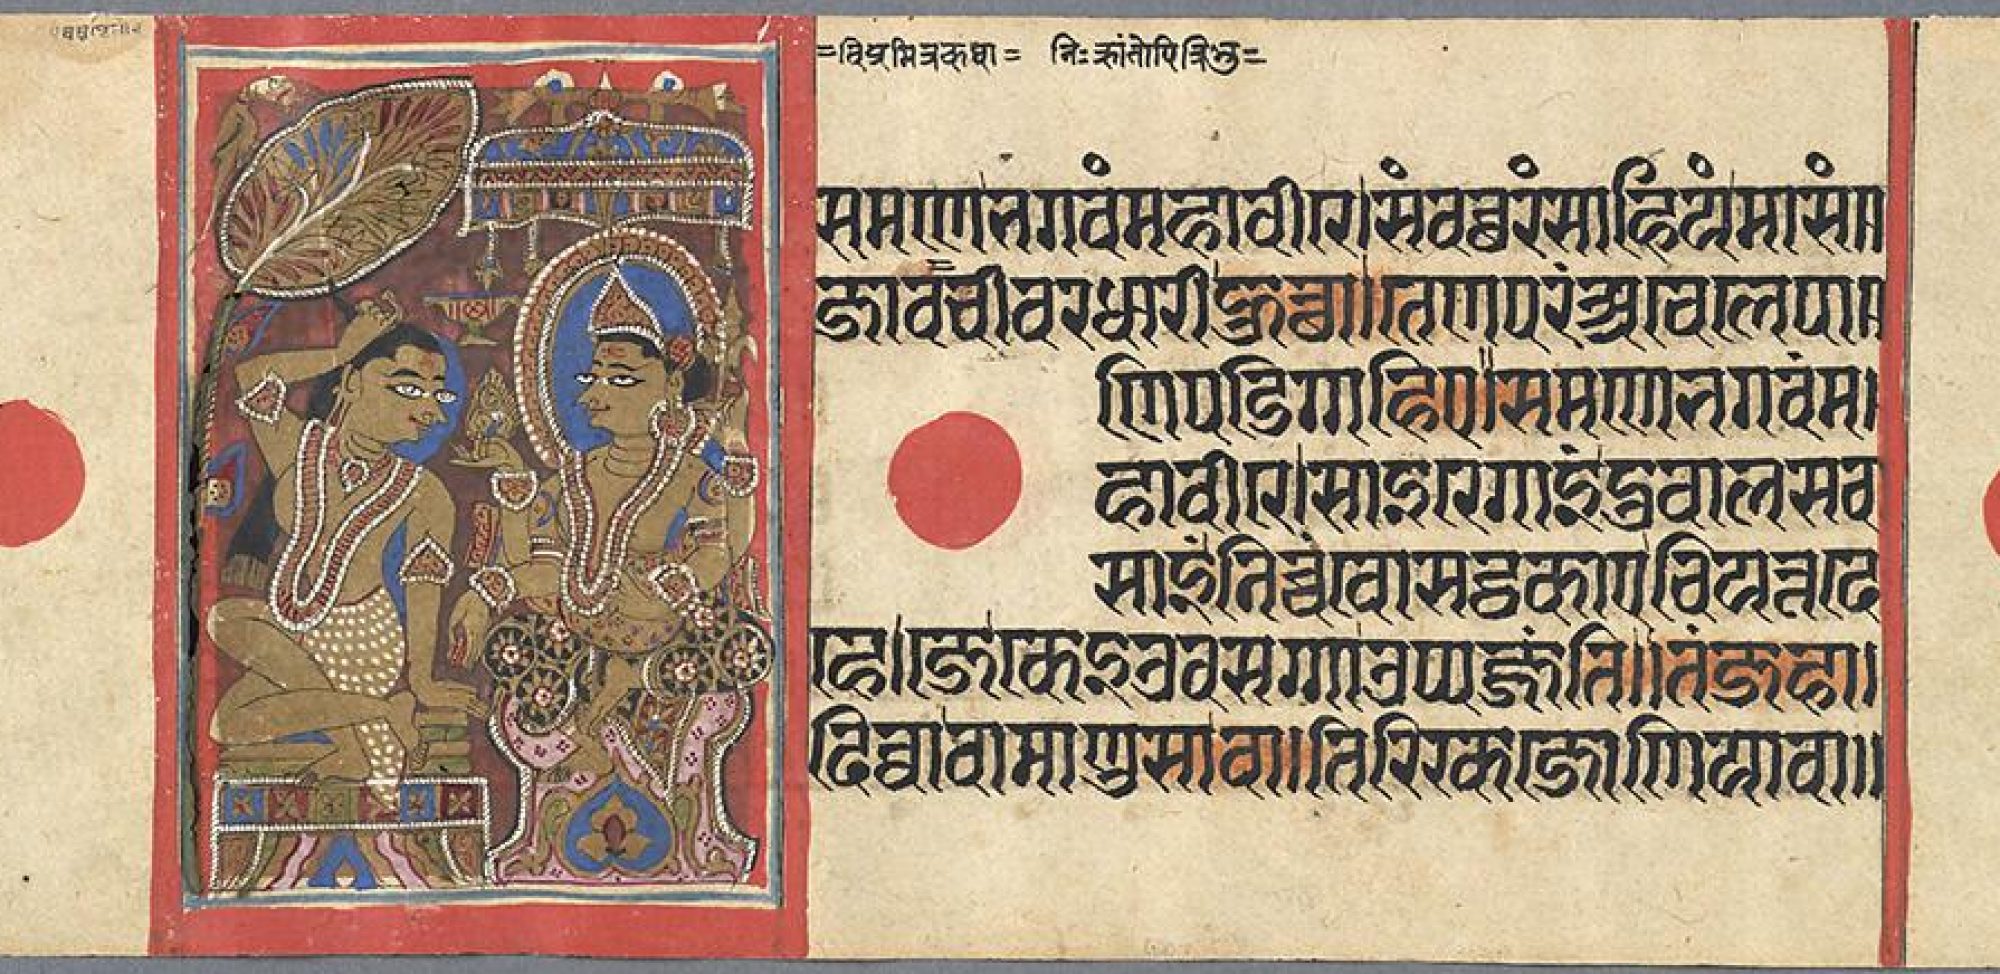 =विप्रमित्रकथा= निःक्रांतोपित्रिभु=
समणे भगवं महावीरे संवच्छरं साहियं मासं॥
जाव चीवरधारी हुत्था॥ तेण परं अचेलए पा॥
णिपडिग्गहिए॥ समणे भगवं म।
हावीरे साइरेगाइं दुवालस वा
साइं निच्चं वोसट्ठकाए चियत्तदे
हे॥ जे केइ उवसग्गा उप्पज्जंति॥ तं जहा॥
दिव्वा वा माणुसा वा॥ तिरिक्खजोणिया वा॥